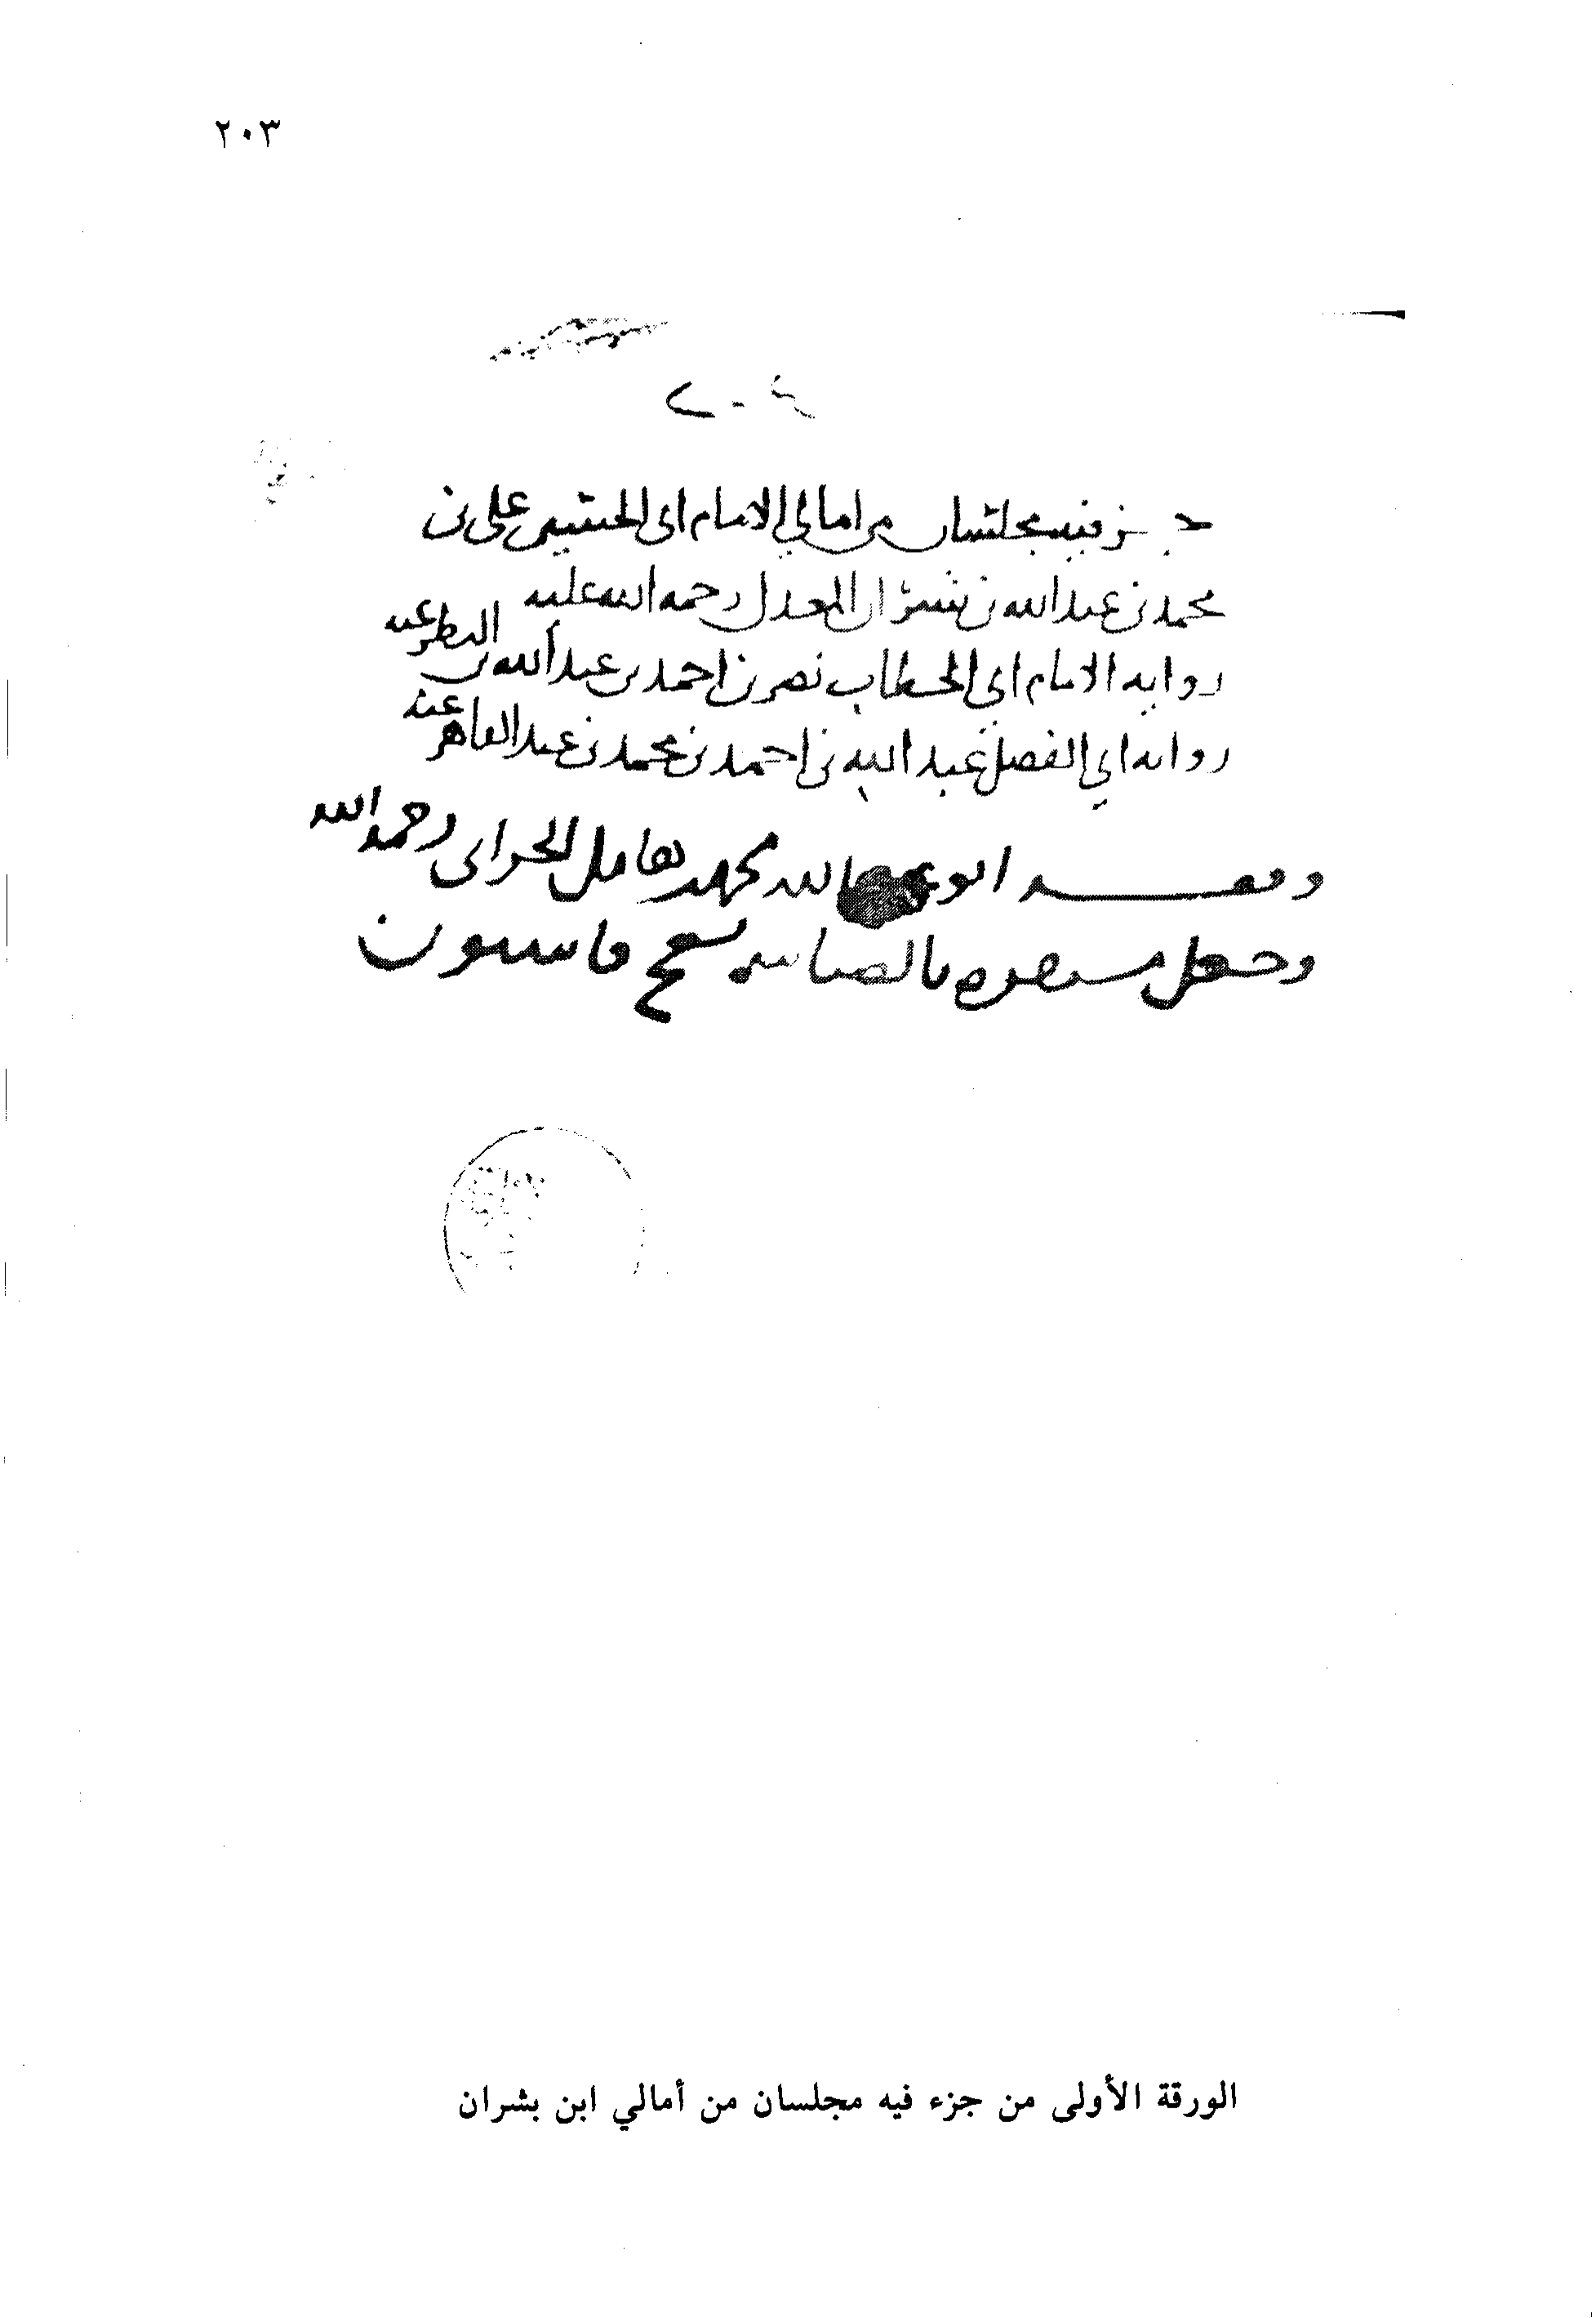 ٢٠٣
جزء فيه مجلسان من امالي الامام ابي الحسين علي بن
محمد بن عبد الله بن بشران المعدل رحمه الله عليه
رواية الامام ابي الخطاب نصر بن احمد بن عبد الله بن البطر عنه
رواية ابي الفضل عبد الله بن احمد بن محمد بن عبد القاهر عنه
وقفه ابو عبد الله محمد بن هامل الحراني رحمه الله
وجعل مستقره بالضيائية بسفح قاسيون
الورقة الأولى من جزء فيه مجلسان من أمالي ابن بشران